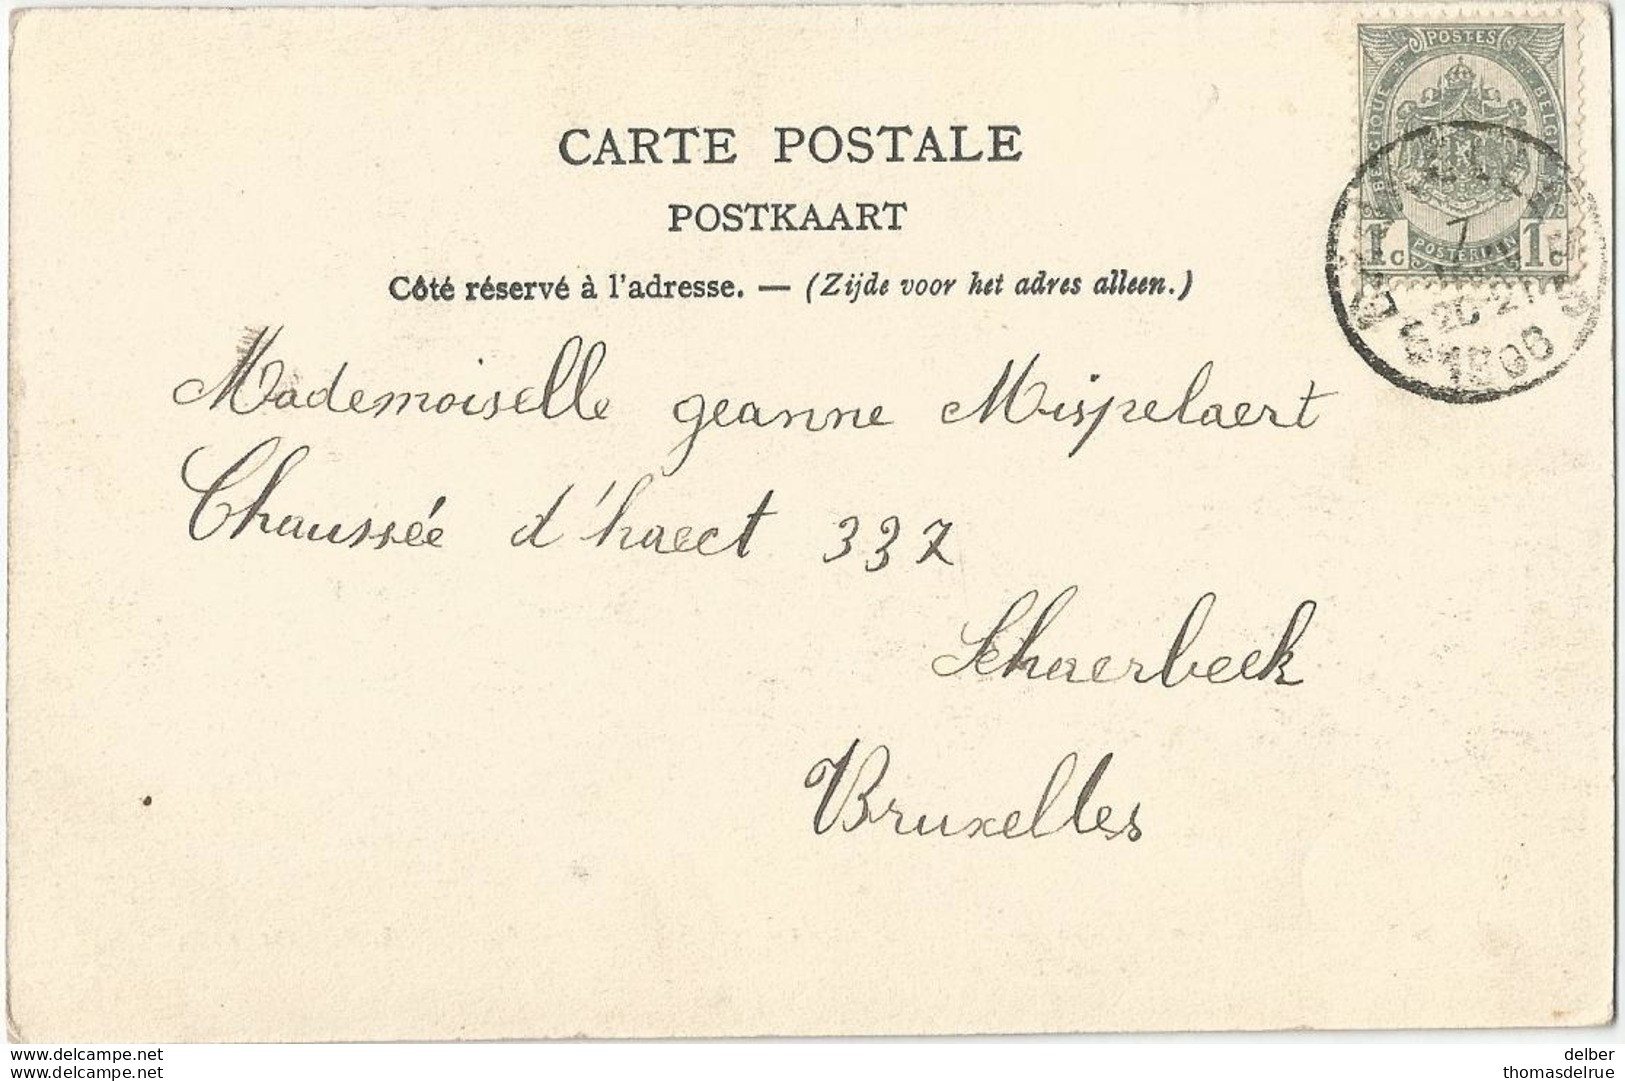 POSTES
BELGIQUE BELGIË
POSTERIJEN
1c 1c
7
1906
CARTE POSTALE
POSTKAART
Côté réservé à l'adresse. — (Zijde voor het adres alleen.)
Mademoiselle geanne Mispelaert
Chaussée d'haect 337
Schaerbeek
Bruxelles
www.delcampe.net delber
www.delcampe.net thomasdelrue